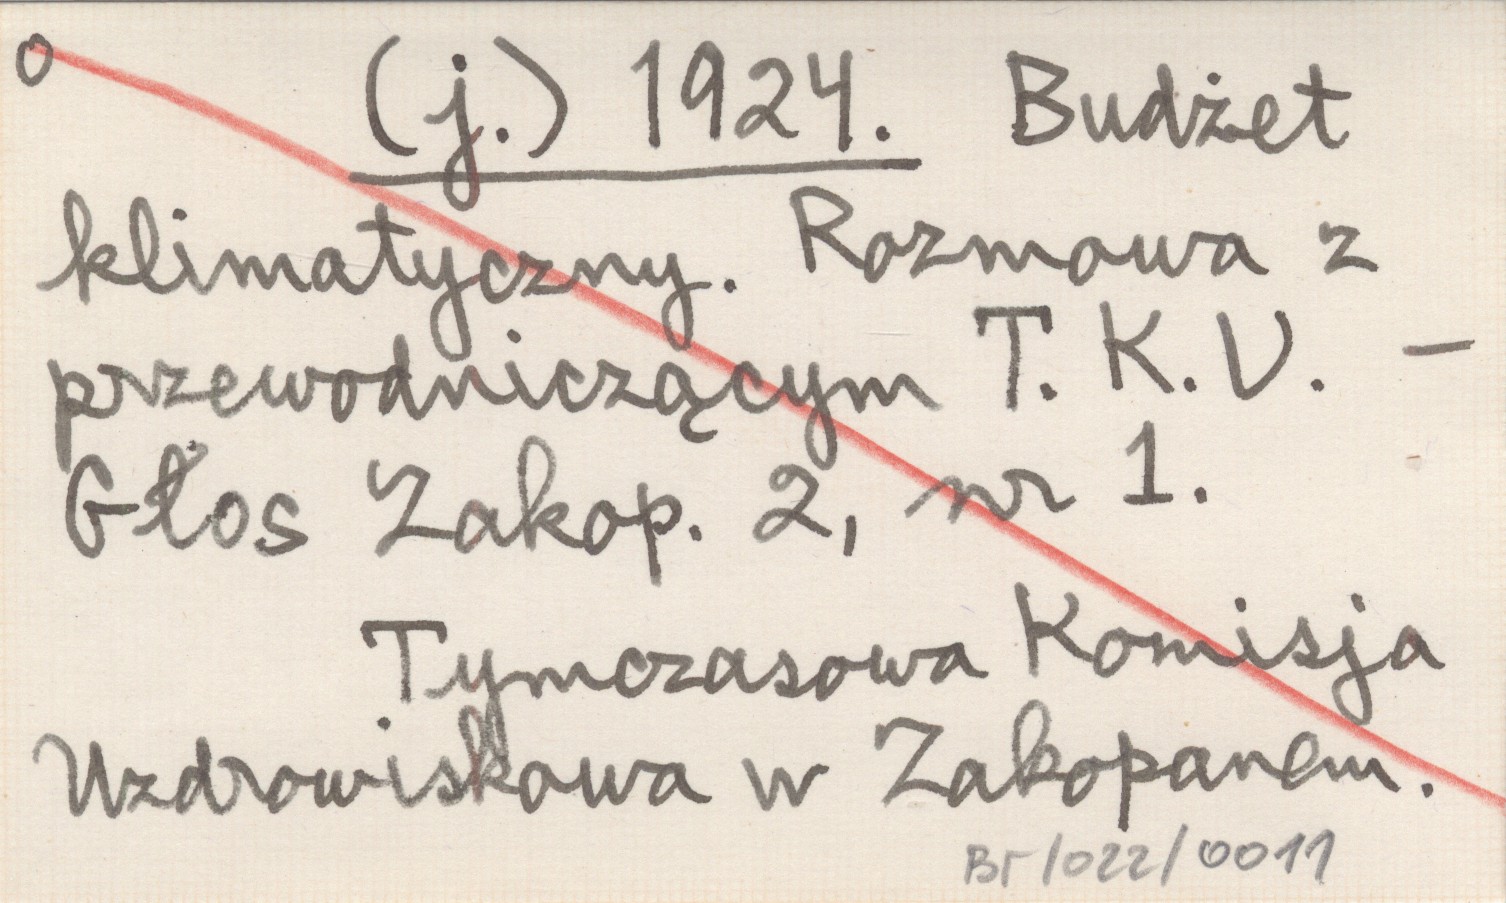 o (j.) 1924. Budżet
klimatyczny. Rozmowa z
przewodniczącym T. K. U. –
Głos Zakop. 2, nr 1.
Tymczasowa Komisja
Uzdrowiskowa w Zakopanem.
Br/022/0011